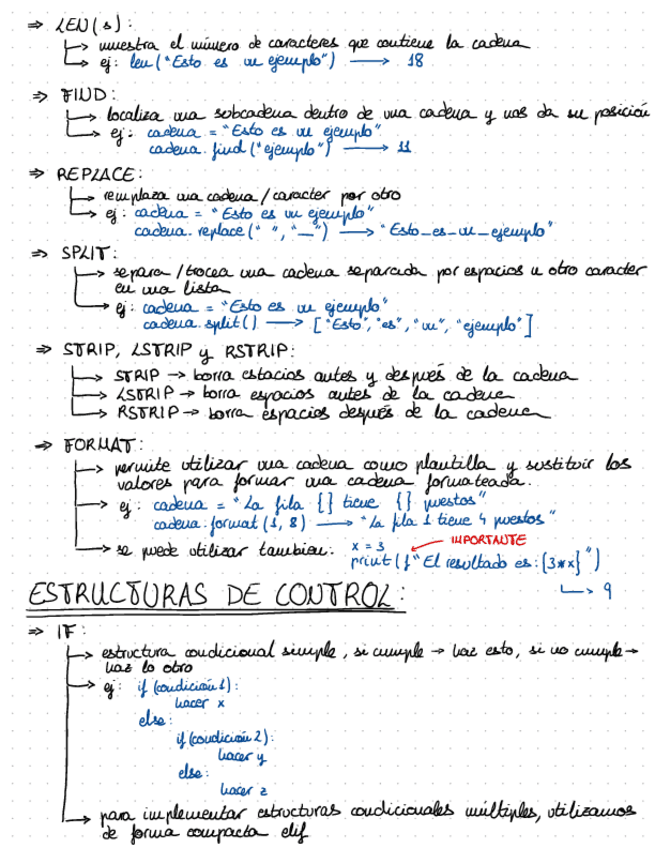 ⇒ LEN(s):
→ muestra el número de caracteres que contiene la cadena
→ ej: len("Esto es un ejemplo") → 18
⇒ FIND:
→ localiza una subcadena dentro de una cadena y nos da su posición
→ ej: cadena = "Esto es un ejemplo"
cadena.find("ejemplo") → 11
⇒ REPLACE:
→ remplaza una cadena/caracter por otro
→ ej: cadena = "Esto es un ejemplo"
cadena.replace(" ", "_") → "Esto_es_un_ejemplo"
⇒ SPLIT:
→ separa/trocea una cadena separada por espacios u otro caracter
en una lista
→ ej: cadena = "Esto es un ejemplo"
cadena.split() → ["Esto", "es", "un", "ejemplo"]
⇒ STRIP, LSTRIP y RSTRIP:
→ STRIP → borra estacios antes y después de la cadena
→ LSTRIP → borra espacios antes de la cadena
→ RSTRIP → borra espacios después de la cadena
⇒ FORMAT:
→ permite utilizar una cadena como plantilla y sustituir los
valores para formar una cadena formateada.
→ ej: cadena = "La fila {} tiene {} puestos"
cadena.format(1, 8) → "La fila 1 tiene 4 puestos"
→ se puede utilizar tambien: x = 3 ← IMPORTANTE
print(f"El resultado es: {3*x}")
→ 9
ESTRUCTURAS DE CONTROL:
⇒ IF:
→ estructura condicional simple, si cumple → haz esto, si no cumple →
haz lo otro
→ ej: if (condición 1):
hacer x
else:
if (condición 2):
hacer y
else:
hacer z
→ para implementar estructuras condicionales múltiples, utilizamos
de forma compacta elif